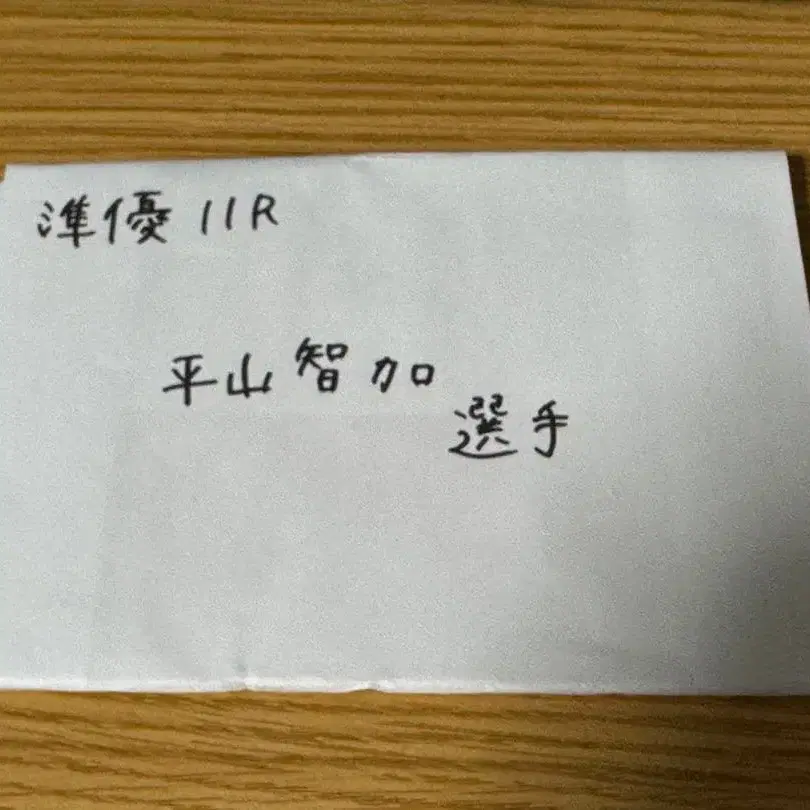 準優 11R
平山智加
選手